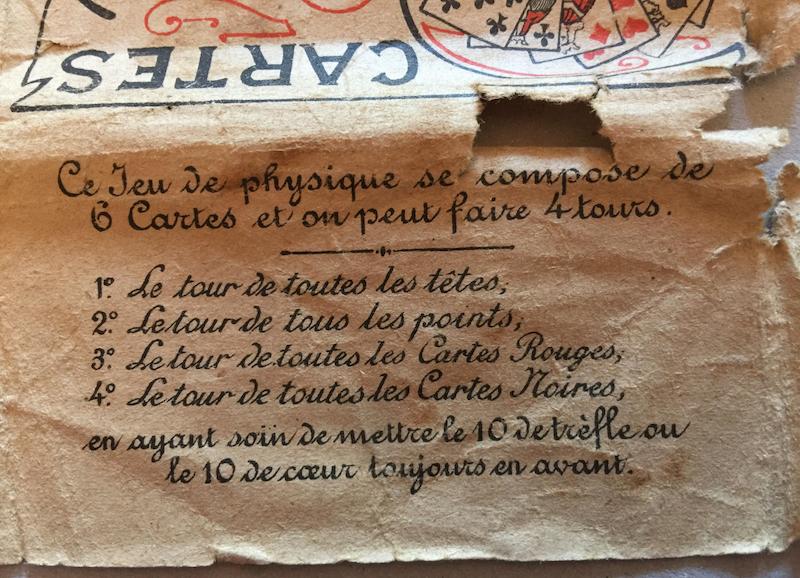 CARTES
Ce Jeu de physique se compose de
6 Cartes et on peut faire 4 tours.
1º. Le tour de toutes les têtes,
2º. Le tour de tous les points,
3º. Le tour de toutes les Cartes Rouges,
4º. Le tour de toutes les Cartes Noires,
en ayant soin de mettre le 10 de trèfle ou
le 10 de cœur toujours en avant.